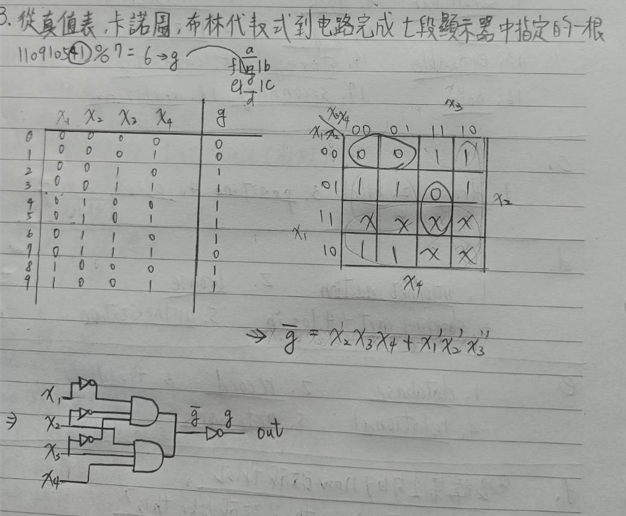 3. 從真值表,卡諾圖,布林代數式到電路完成七段顯示器中指定的一根
110910541 % 7 = 6 → g
a
f g b
e c
d
x₁ x₂ x₃ x₄ g
0 0 0 0 0 0
1 0 0 0 1 0
2 0 0 1 0 1
3 0 0 1 1 1
4 0 1 0 0 1
5 0 1 0 1 1
6 0 1 1 0 1
7 0 1 1 1 0
8 1 0 0 0 1
9 1 0 0 1 1
x₃
x₃x₄ 00 01 11 10
x₁x₂
00 0 0 1 1
01 1 1 0 1 x₂
11 x x x x
x₁
10 1 1 x x
x₄
⇒ g̅ = x₂x₃x₄ + x₁'x₂'x₃'
x₁
⇒ x₂ g̅ g out
x₃
x₄